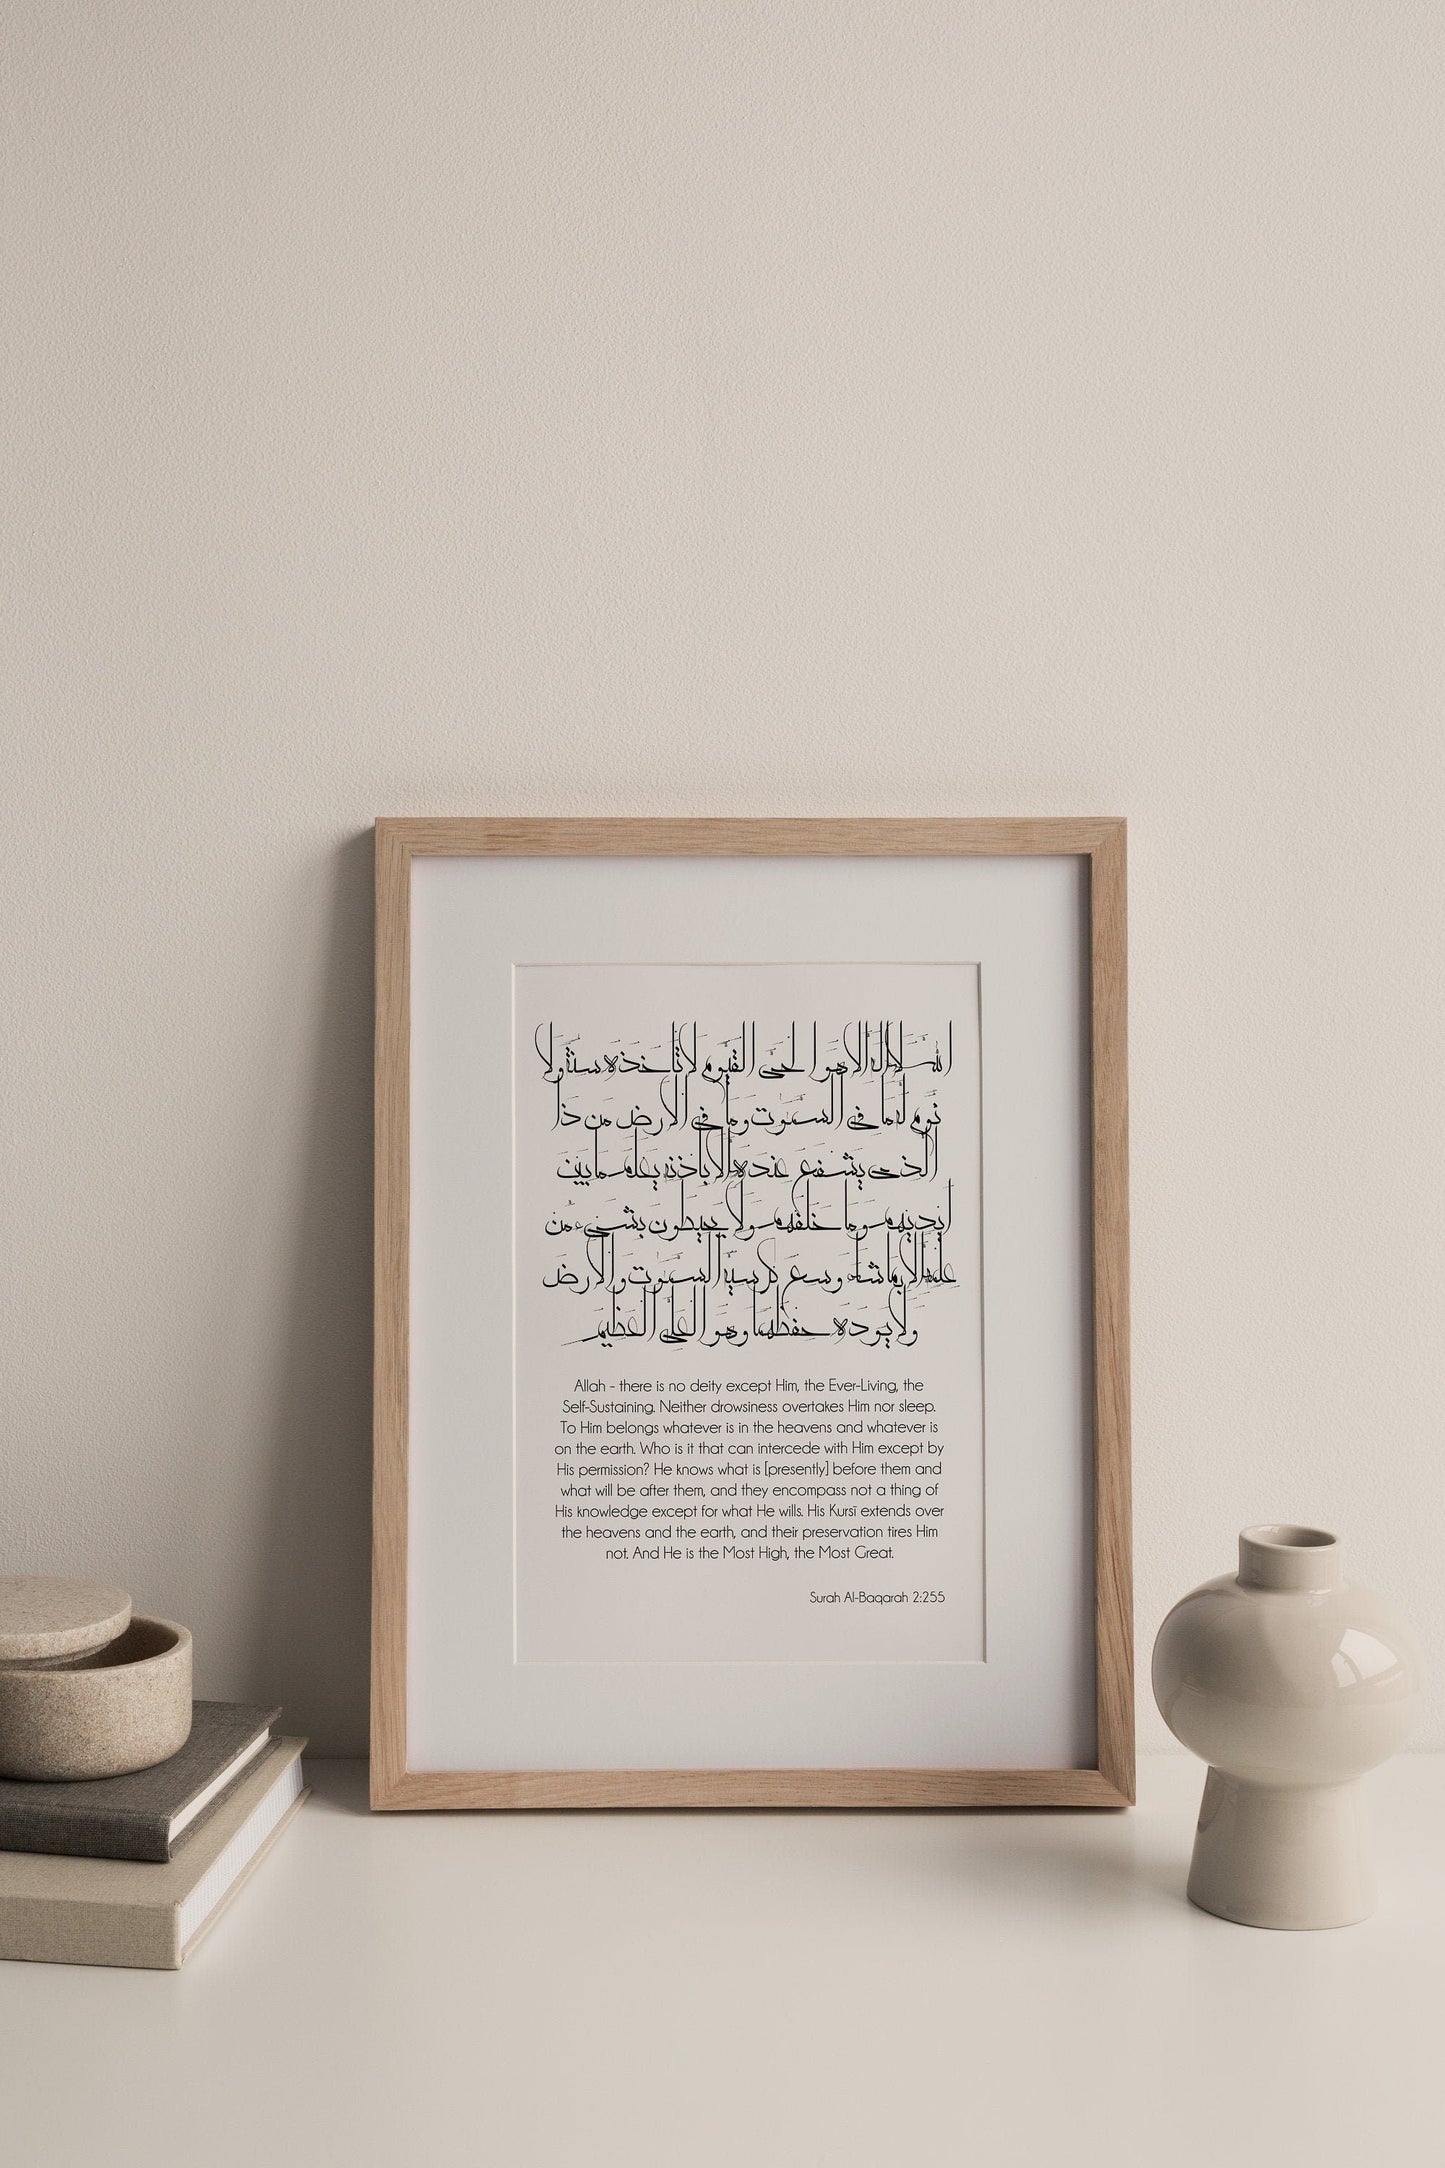 الله لا اله الا هو الحي القيوم لا تاخذه سنة ولا
نوم له ما في السموت وما في الارض من ذا
الذي يشفع عنده الا باذنه يعلم ما بين
ايديهم وما خلفهم ولا يحيطون بشيء من
علمه الا بما شاء وسع كرسيه السموت والارض
ولا يوده حفظهما وهو العلي العظيم
Allah - there is no deity except Him, the Ever-Living, the
Self-Sustaining. Neither drowsiness overtakes Him nor sleep.
To Him belongs whatever is in the heavens and whatever is
on the earth. Who is it that can intercede with Him except by
His permission? He knows what is [presently] before them and
what will be after them, and they encompass not a thing of
His knowledge except for what He wills. His Kursī extends over
the heavens and the earth, and their preservation tires Him
not. And He is the Most High, the Most Great.
Surah Al-Baqarah 2:255